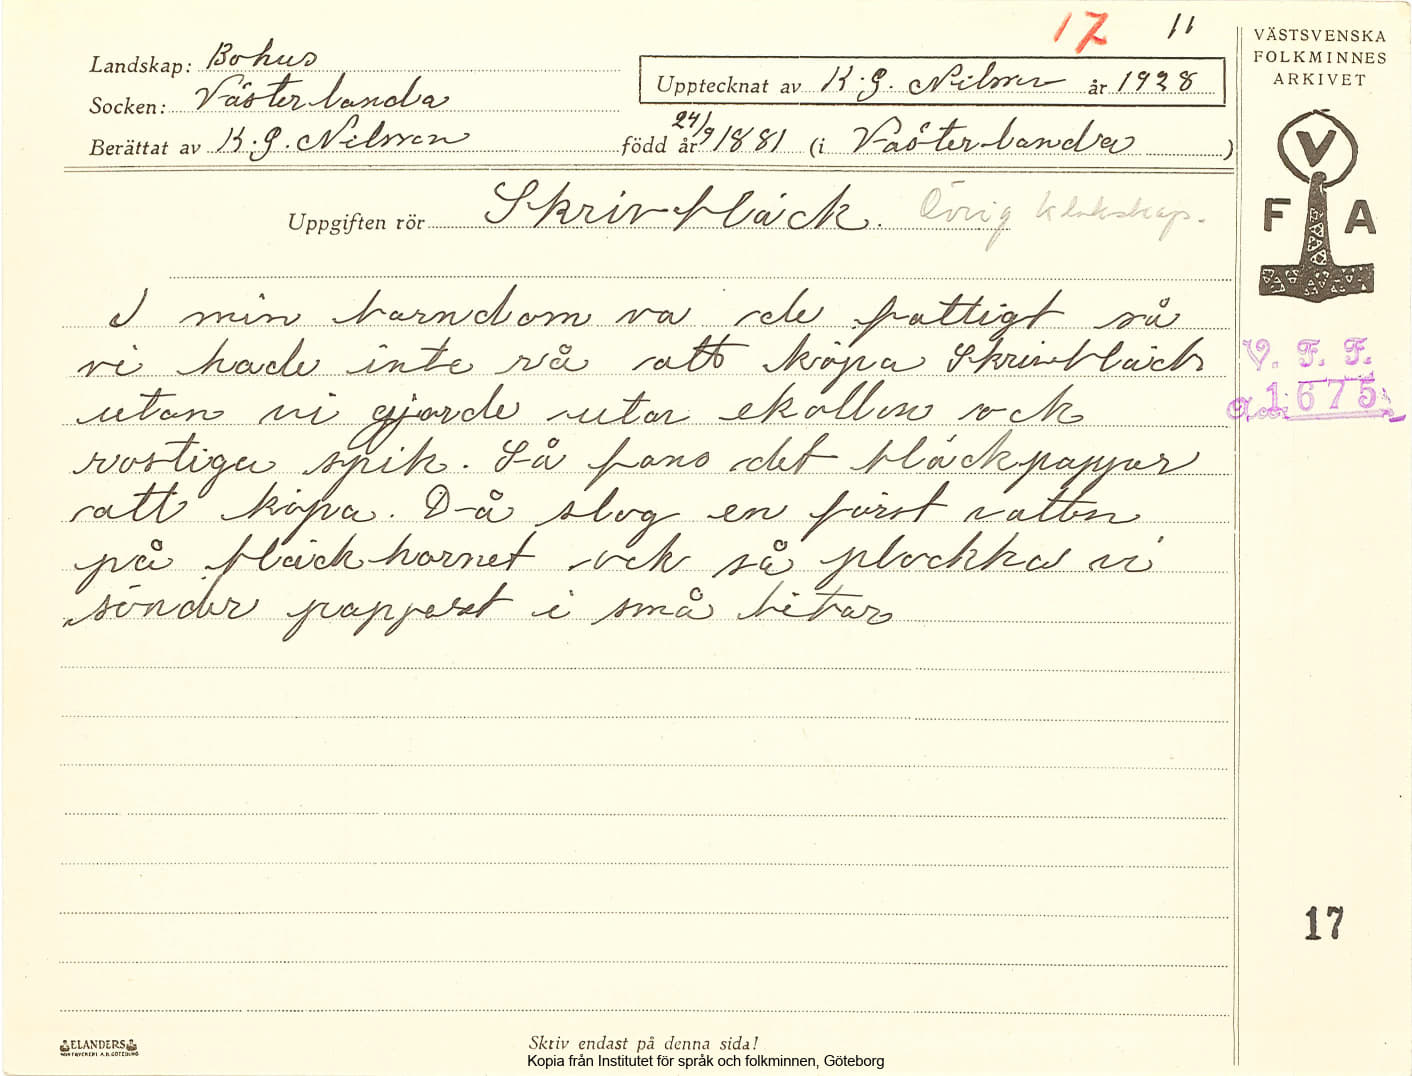 17 11
VÄSTSVENSKA
FOLKMINNES
ARKIVET
Landskap: Bohus
Upptecknat av K. G. Nilsson år 1928
Socken: Västerlanda
Berättat av K. G. Nilsson född år 24/9 1881 (i Västerlanda)
V F A
Uppgiften rör Skrivbläck. Övrig klokskap.
I min barndom va de fattigt så
vi hade inte rå att köpa Skrivbläck
utan vi gjorde utar ekollon ock
rostiga spik. Så fans det bläckpappar
att köpa. Då slog en först vatten
på bläckhornet ock så plockka vi
sönder papperet i små bitar
V. F. F.
1675
17
ELANDERS
Skriv endast på denna sida!
Kopia från Institutet för språk och folkminnen, Göteborg